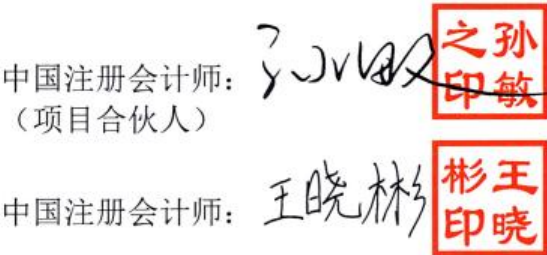 中国注册会计师：孙敏 孙敏之印
（项目合伙人）
中国注册会计师：王晓彬 王晓彬印